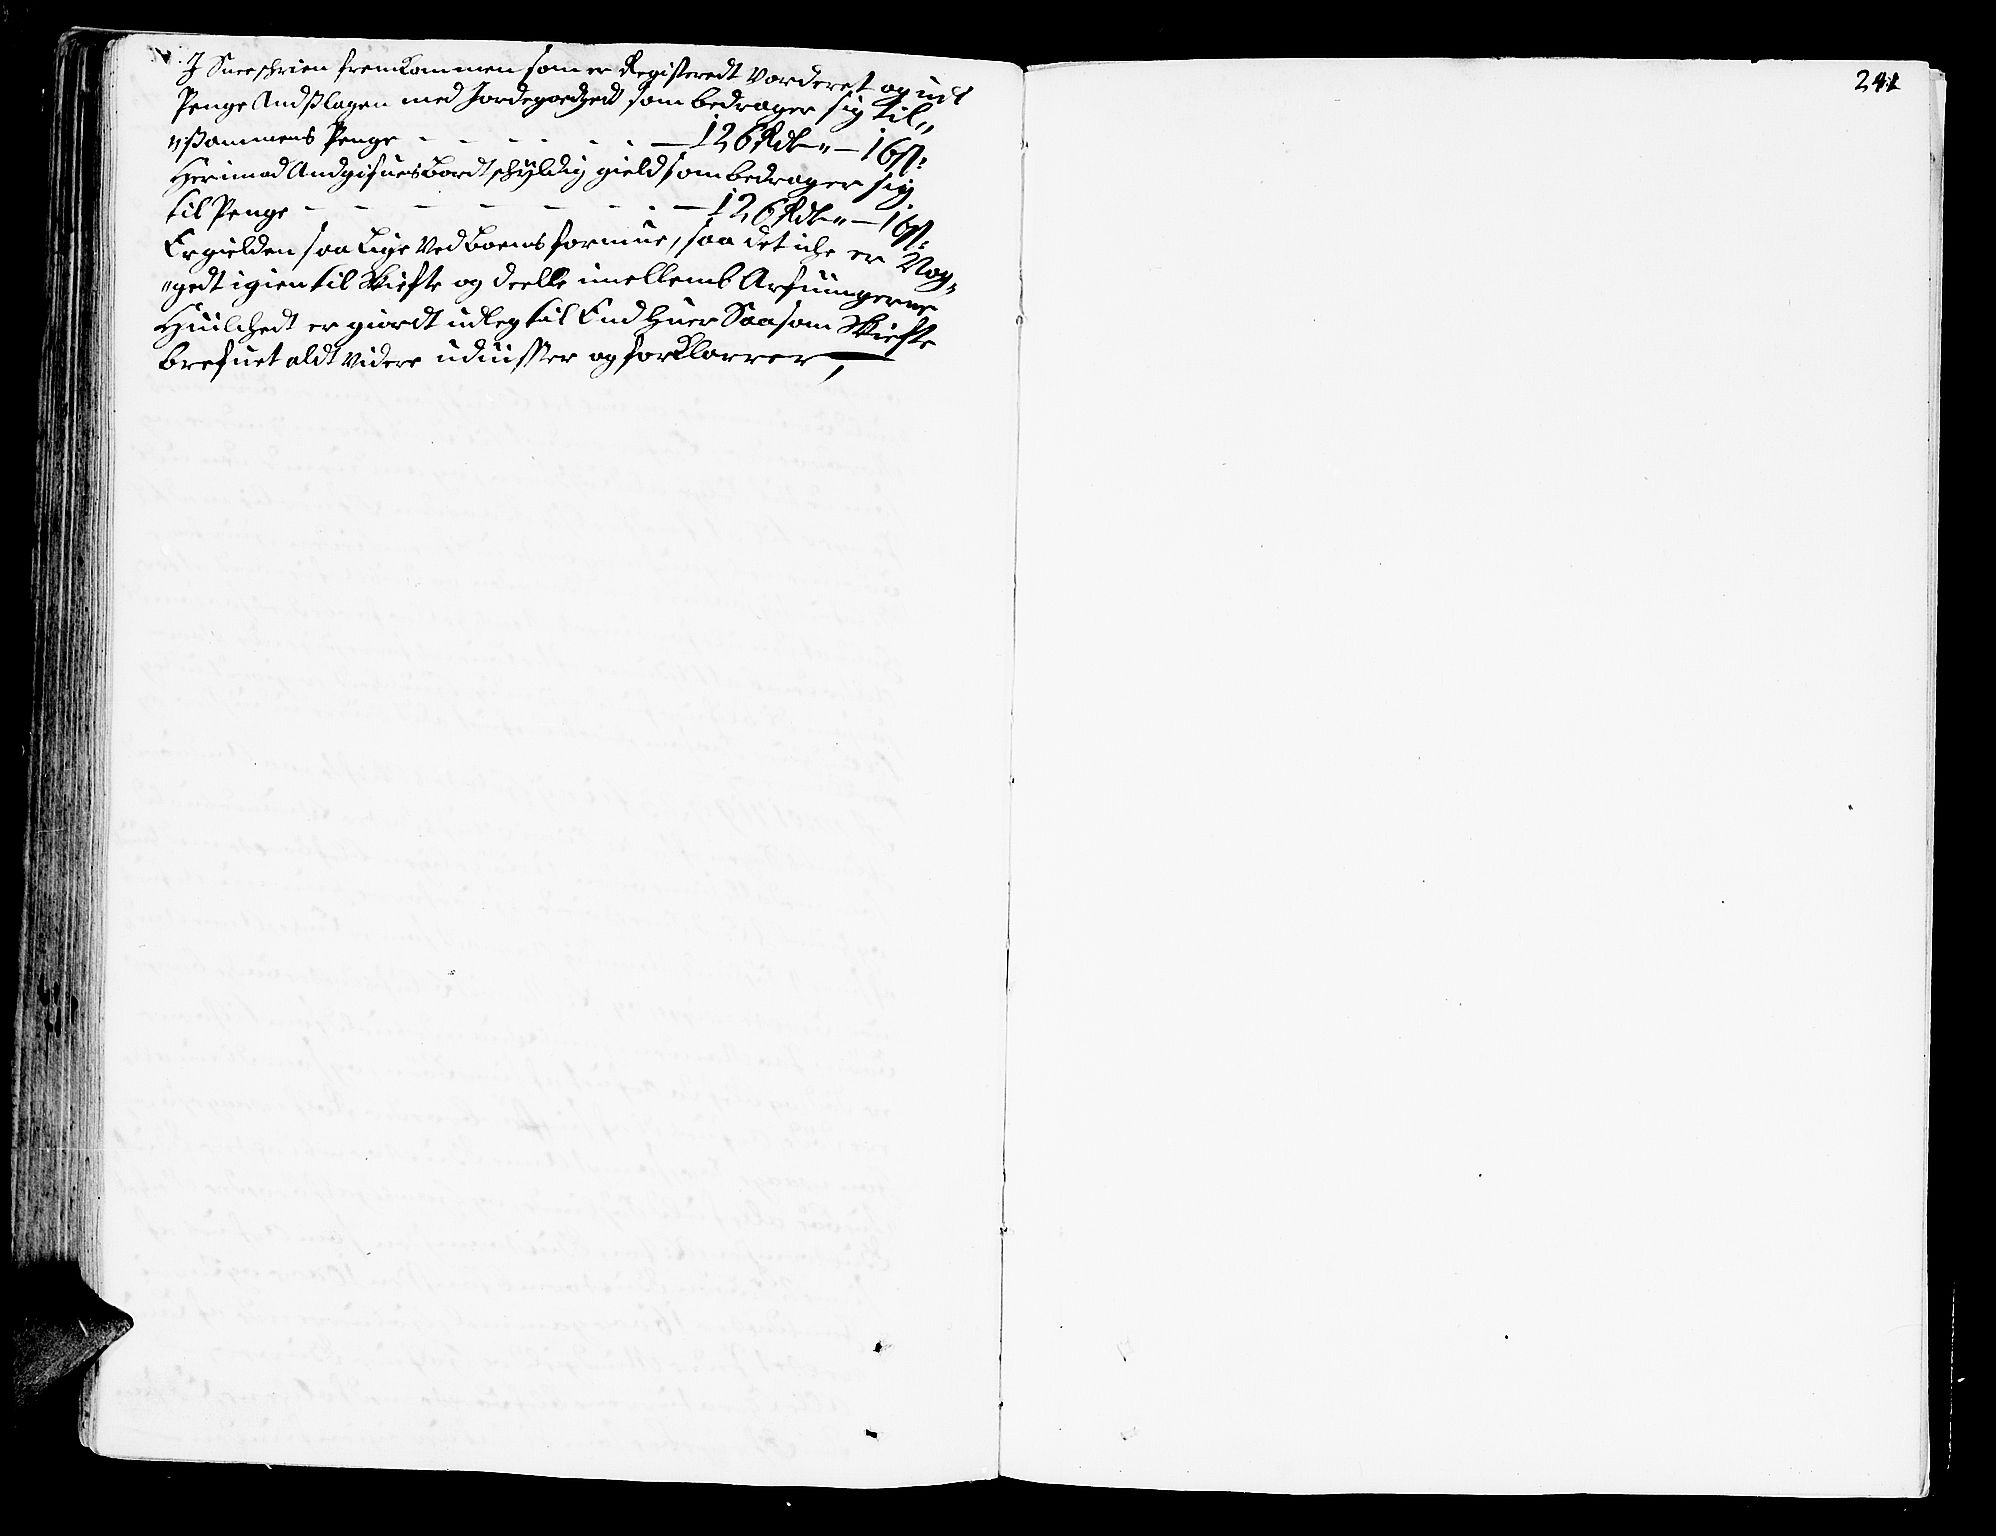 J Suerschrien fremkommen som er Registeredt Vorderet og udi
Penge Andslagen med Jordegodzett som bedrager sig til„
„ssammens Penge - - - - - - 126 Rdr „ - 16 s:
Herimod Andgifues bordtschÿldig gield som bedrager sig
til Penge - - - - - - - 126 Rdr „ - 16 s:
Er gielden saa Lige Ved boens formue, saa det iche er Nog„
„gedt igien til Skiefte og deelle imellemb Arfuingerne
Huilchedt er giordt udleg til End huer Saasom Skiefte
brefuet aldt videre uduisser og forklarrer,
241